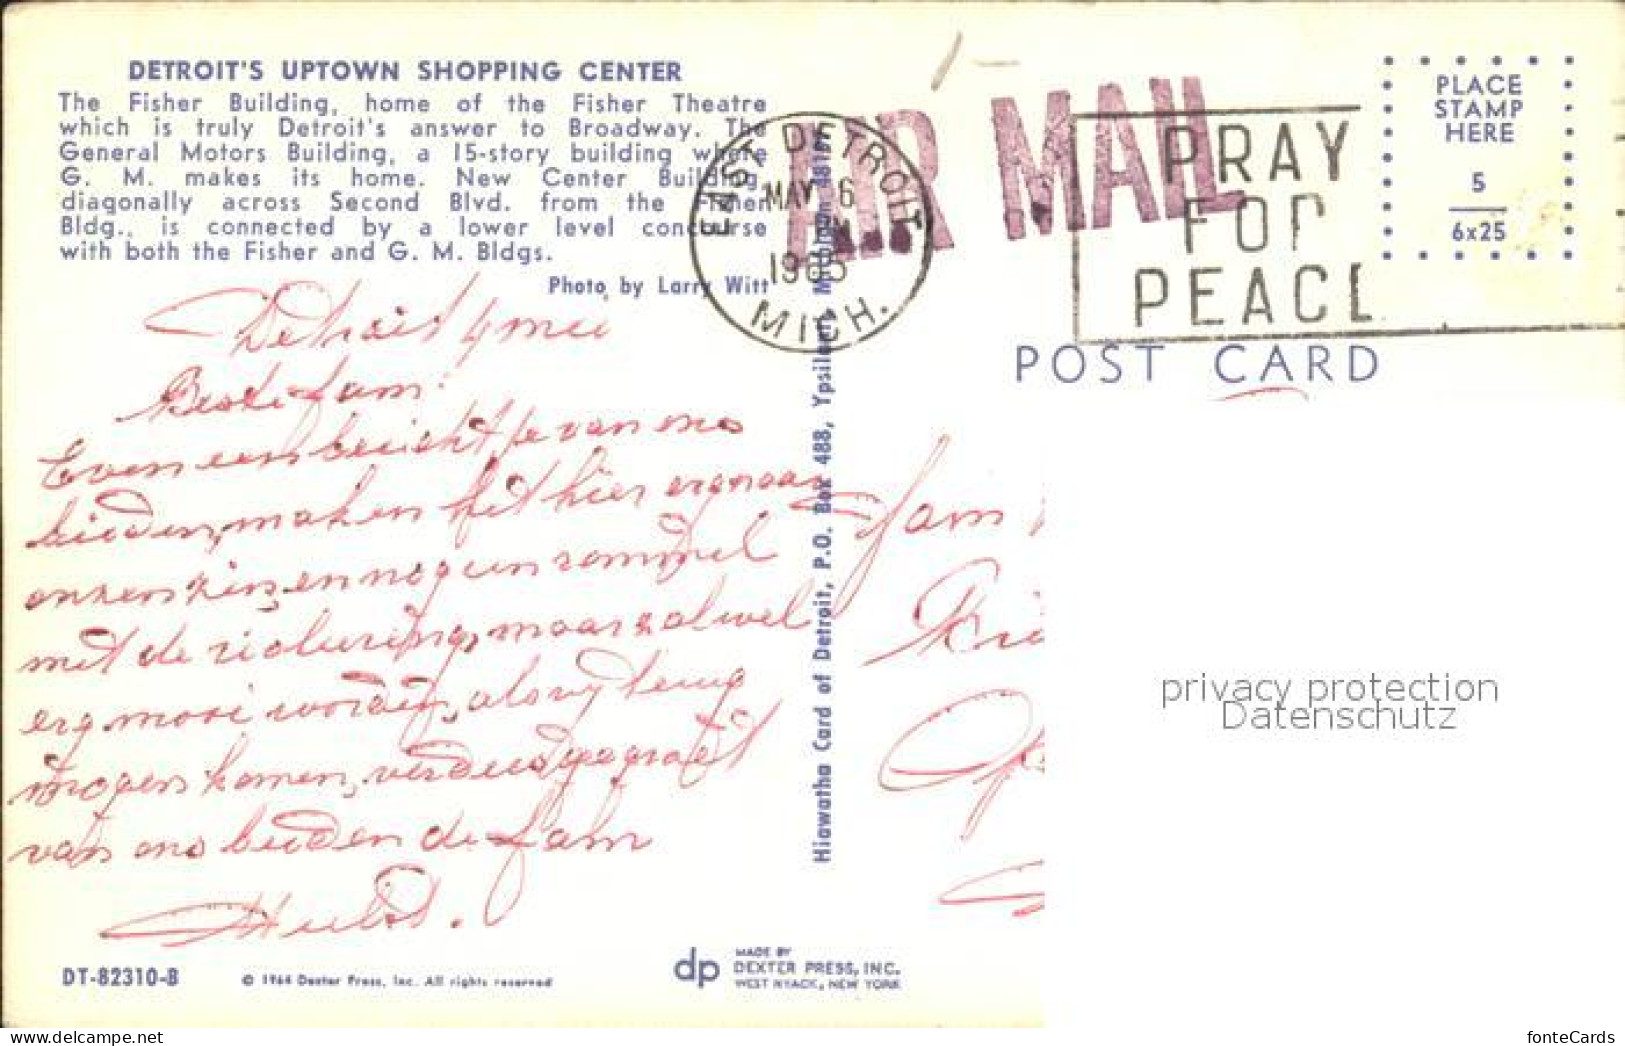 DETROIT'S UPTOWN SHOPPING CENTER
The Fisher Building, home of the Fisher Theatre
which is truly Detroit's answer to Broadway. The
General Motors Building, a 15-story building where
G. M. makes its home. New Center Building,
diagonally across Second Blvd. from the Fisher
Bldg., is connected by a lower level concourse
with both the Fisher and G. M. Bldgs.
Photo by Larry Witt
EAST DETROIT
MAY 6
1965
MICH.
AIR MAIL
PRAY
FOR
PEACE
PLACE
STAMP
HERE
5
6x25
POST CARD
Hiawatha Card of Detroit, P.O. Box 488, Ypsilanti, Michigan 48197
Detroit 4 mei
Beste fam.
Even een bericht je van ons
beiden, maken het hier erg naar
onzen zin, en nog een rommel
met de riolering, maar zal wel
erg mooi worden, als wij terug
mogen komen, verders gegroet
van ons beiden de fam
Hulst.
fam
privacy protection
Datenschutz
DT-82310-B
© 1964 Dexter Press, Inc. All rights reserved
dp
MADE BY
DEXTER PRESS, INC.
WEST NYACK, NEW YORK
fonteCards